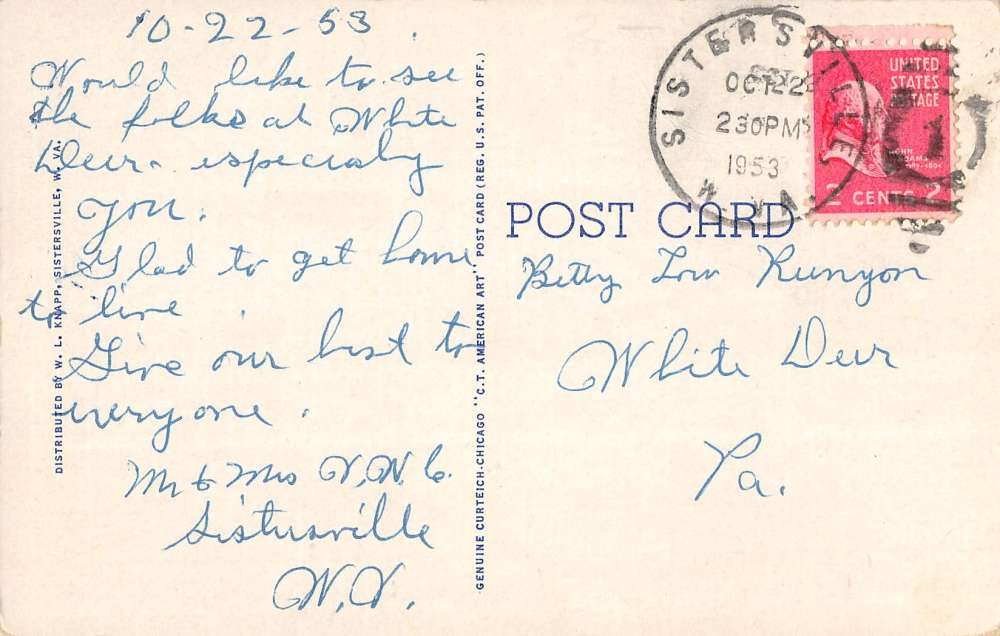 10-22-53.
Would like to see
the folks at White
Deer - especialy
you.
Glad to get home
to live.
Give our best to
everyone.
Mr & Mrs V.N.C.
Sistersville
W.V.
DISTRIBUTED BY W. L. KNAPP, SISTERSVILLE, W. VA.
GENUINE CURTEICH-CHICAGO "C.T. AMERICAN ART" POST CARD (REG. U.S. PAT. OFF.)
SISTERSVILLE
OCT 22
230PM
1953
W. VA.
UNITED
STATES
POSTAGE
JOHN
ADAMS
2 CENTS 2
POST CARD
Betty Lou Runyon
White Deer
Pa.